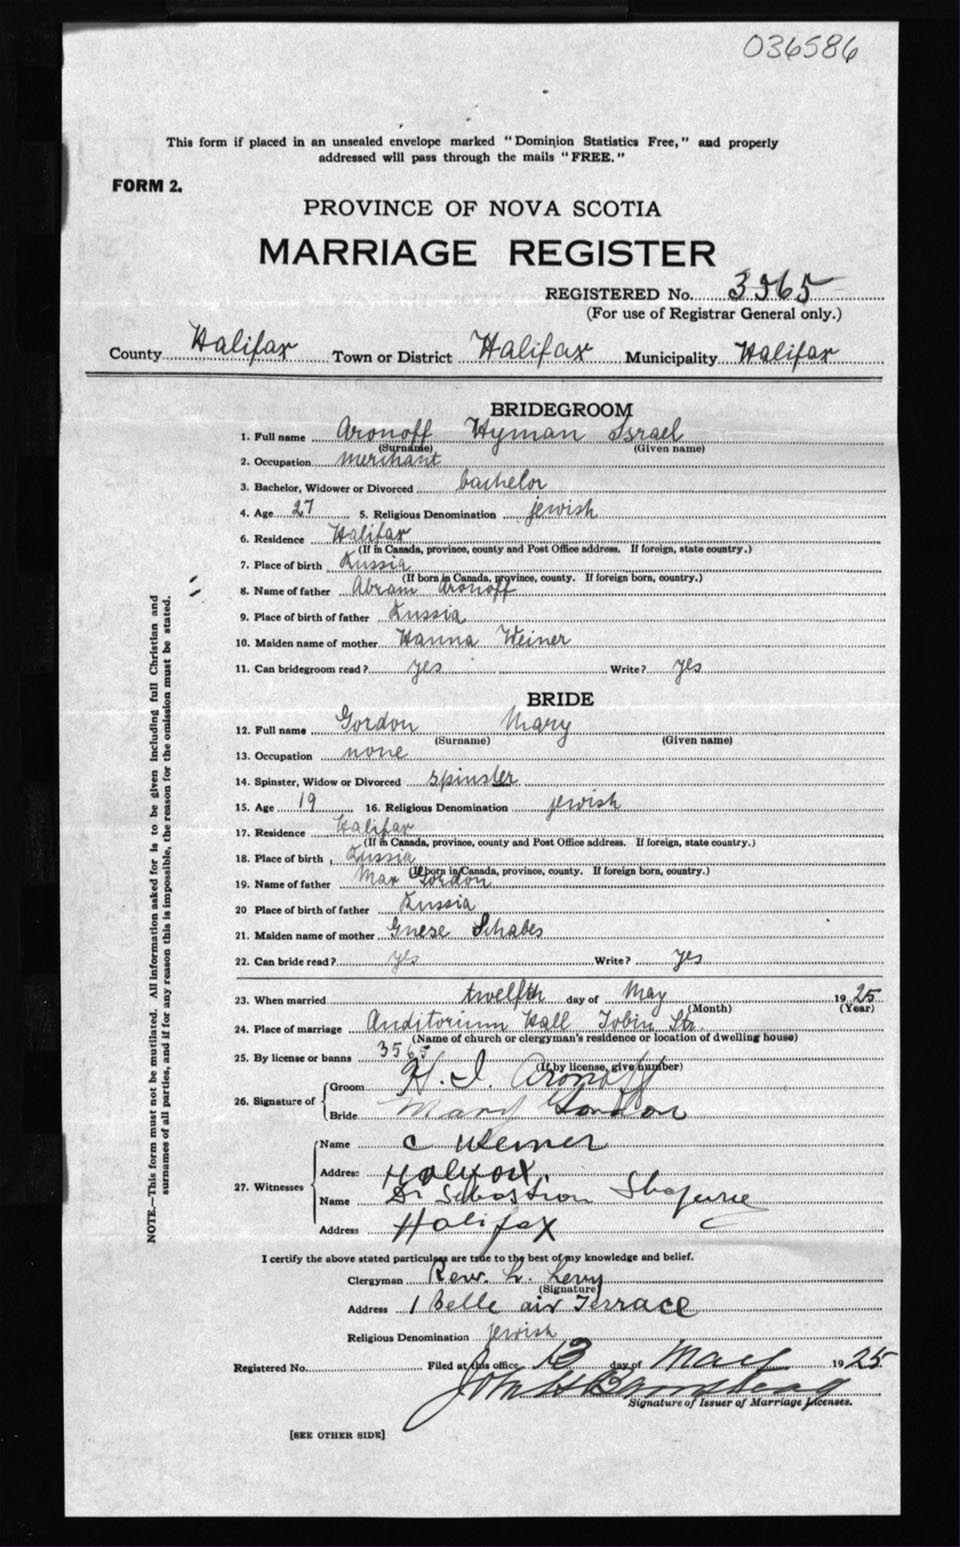 036586
This form if placed in an unsealed envelope marked "Dominion Statistics Free," and properly
addressed will pass through the mails "FREE."
FORM 2.
PROVINCE OF NOVA SCOTIA
MARRIAGE REGISTER
REGISTERED No. 3565
(For use of Registrar General only.)
County Halifax Town or District Halifax Municipality Halifax
BRIDEGROOM
1. Full name Aronoff Hyman Israel
(Surname) (Given name)
2. Occupation merchant
3. Bachelor, Widower or Divorced bachelor
4. Age 27 5. Religious Denomination jewish
6. Residence Halifax
(If in Canada, province, county and Post Office address. If foreign, state country.)
7. Place of birth Russia
(If born in Canada, province, county. If foreign born, country.)
8. Name of father Abram Aronoff
9. Place of birth of father Russia
10. Maiden name of mother Hanna Weiner
11. Can bridegroom read? yes Write? yes
BRIDE
12. Full name Gordon Mary
(Surname) (Given name)
13. Occupation none
14. Spinster, Widow or Divorced spinster
15. Age 19 16. Religious Denomination jewish
17. Residence Halifax
(If in Canada, province, county and Post Office address. If foreign, state country.)
18. Place of birth Russia
(If born in Canada, province, county. If foreign born, country.)
19. Name of father Max Gordon
20 Place of birth of father Russia
21. Maiden name of mother Gnese Schabes
22. Can bride read? yes Write? yes
23. When married twelfth day of May 1925
(Month) (Year)
24. Place of marriage Auditorium Hall Tobin Str.
(Name of church or clergyman's residence or location of dwelling house)
25. By license or banns 3565
(If by license, give number)
26. Signature of Groom H. I. Aronoff
Bride Mary Gordon
27. Witnesses Name C Weiner
Address Halifax.
Name Dr Sebastion
Address Halifax
NOTE.—This form must not be mutilated. All information asked for is to be given including full Christian and
surnames of all parties, and if for any reason this is impossible, the reason for the omission must be stated.
I certify the above stated particulars are true to the best of my knowledge and belief.
Clergyman Rew. L. Levy
(Signature)
Address 1 Belle air Terrace
Religious Denomination jewish
Registered No. Filed at this office 13 day of May 1925
John H
Signature of Issuer of Marriage Licenses.
[SEE OTHER SIDE]